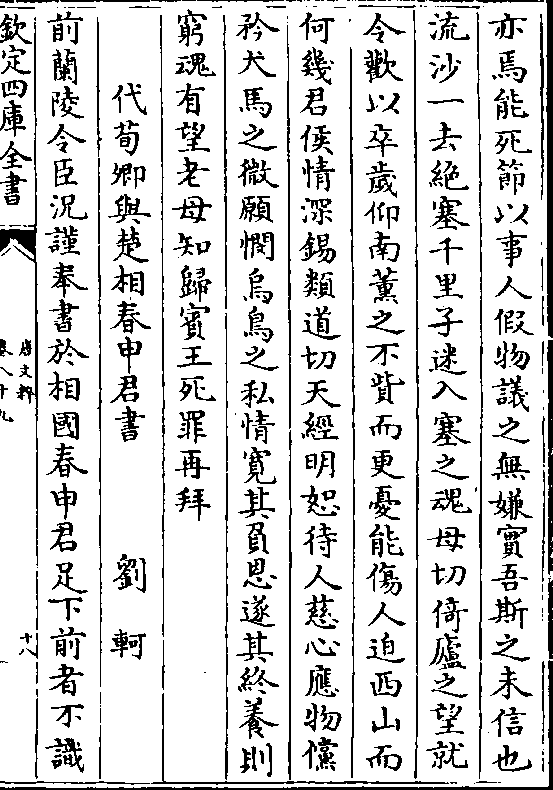 亦焉能死節以事人假物議之無嫌實吾斯之未信也
流沙一去絶塞千里子迷入塞之魂母切倚廬之望就
令歡以卒歲仰南薰之不貲而更憂能傷人迫西山而
何幾君侯情深錫類道切天經明恕待人慈心應物儻
矜犬馬之微願憫烏鳥之私情寛其負恩遂其終養則
窮魂有望老母知歸賓王死罪再拜
代荀卿與楚相春申君書 劉軻
前蘭陵令臣況謹奉書於相國春申君足下前者不識
欽定四庫全書
唐文粹
卷八十九
十八